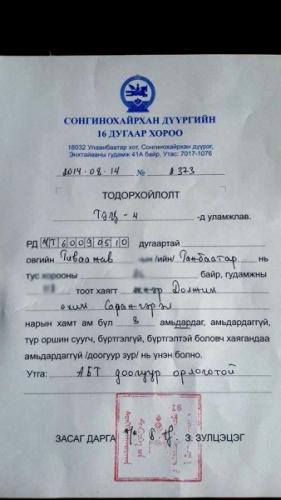 СОНГИНОХАЙРХАН ДҮҮРГИЙН
16 ДУГААР ХОРОО
18032 Улаанбаатар хот, Сонгинохайрхан дүүрэг,
Энхтайваны гудамж 41А байр, Утас: 7017-1076
2014.08.14 № 2373
ТОДОРХОЙЛОЛТ
ТЭЦ-4 -д уламжлав.
РД дугаартай
овгийн -ын /ийн/ Ганбаатар нь
тус хорооны байр, гудамжны
тоот хаягт эхнэр Должин
охин Сарангэрэл
нарын хамт ам бүл 3 амьдардаг, амьдардаггүй,
түр оршин суугч, бүртгэлгүй, бүртгэлтэй боловч хаягандаа
амьдардаггүй /доогуур зур/ нь үнэн болно.
Утга: АБТ доогуур орлоготой
ЗАСАГ ДАРГА З. ЗУЛЦЭЦЭГ